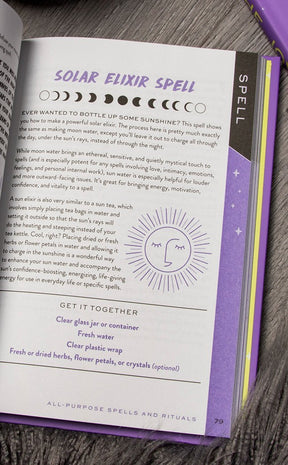 SOLAR ELIXIR SPELL
EVER WANTED TO BOTTLE UP SOME SUNSHINE? This spell shows
you how to make a powerful solar elixir. The process here is pretty much exactly
the same as making moon water, except you'll leave it out to charge all through
the day, under the sun's rays, instead of through the night.
While moon water brings an ethereal, sensitive, and quietly mystical touch to
spells (and is especially potent for any spells involving love, intimacy, emotions,
feelings, and personal internal work), sun water is especially helpful for louder
more outward-facing issues. It's great for bringing energy, motivation,
confidence, and vitality to a spell.
A sun elixir is also very similar to a sun tea, which
involves simply placing tea bags in water and
setting it outside so that the sun's rays will
do the heating and steeping instead of your
tea kettle. Cool, right? Placing dried or fresh
herbs or flower petals in water and allowing it
to charge in the sunshine is a wonderful way
to enhance your sun water and accompany the
sun's confidence-boosting, energizing, life-giving
energy for use in everyday life or specific spells.
GET IT TOGETHER
Clear glass jar or container
Fresh water
Clear plastic wrap
Fresh or dried herbs, flower petals, or crystals (optional)
ALL-PURPOSE SPELLS AND RITUALS
79
SPELL